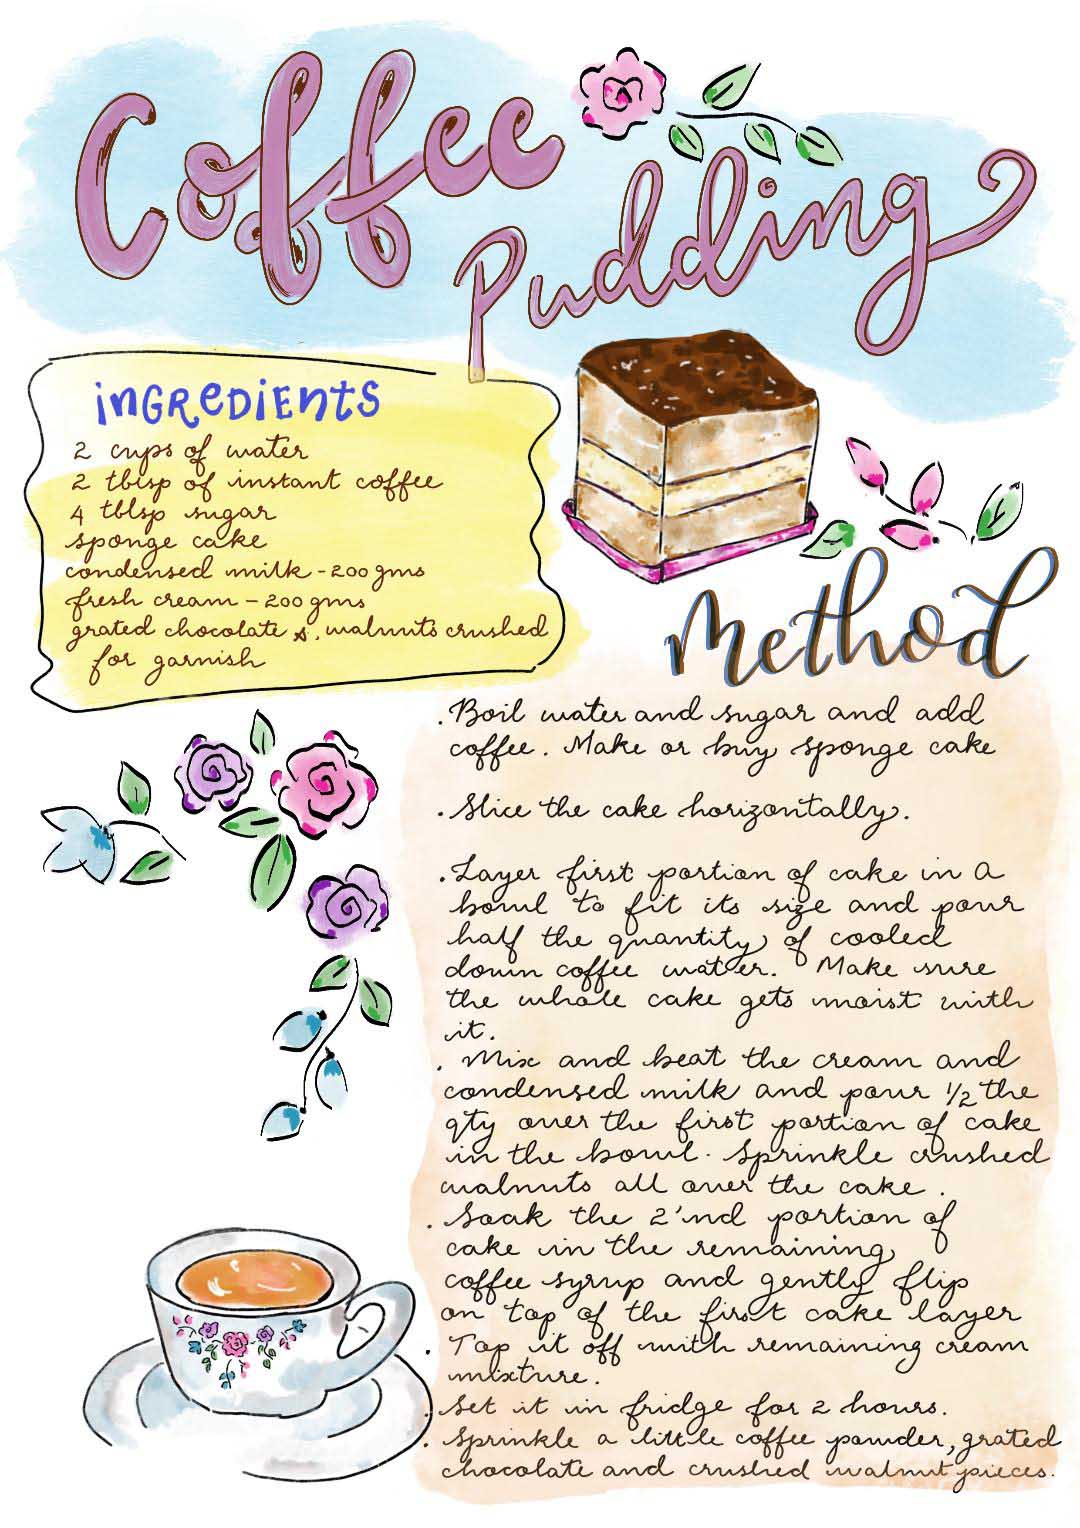 Coffee
Pudding
ingredients
2 cups of water
2 tblsp of instant coffee
4 tblsp sugar
sponge cake
condensed milk - 200 gms
fresh cream - 200 gms
grated chocolate &. walnuts crushed
for garnish
Method
. Boil water and sugar and add
coffee. Make or buy sponge cake
. Slice the cake horizontally.
. Layer first portion of cake in a
bowl to fit its size and pour
half the quantity of cooled
down coffee water. Make sure
the whole cake gets moist with
it.
. Mix and beat the cream and
condensed milk and pour 1/2 the
qty over the first portion of cake
in the bowl. Sprinkle crushed
walnuts all over the cake.
. Soak the 2'nd portion of
cake in the remaining
coffee syrup and gently flip
on top of the first cake layer
. Top it off with remaining cream
mixture.
. Set it in fridge for 2 hours.
. Sprinkle a little coffee powder, grated
chocolate and crushed walnut pieces.